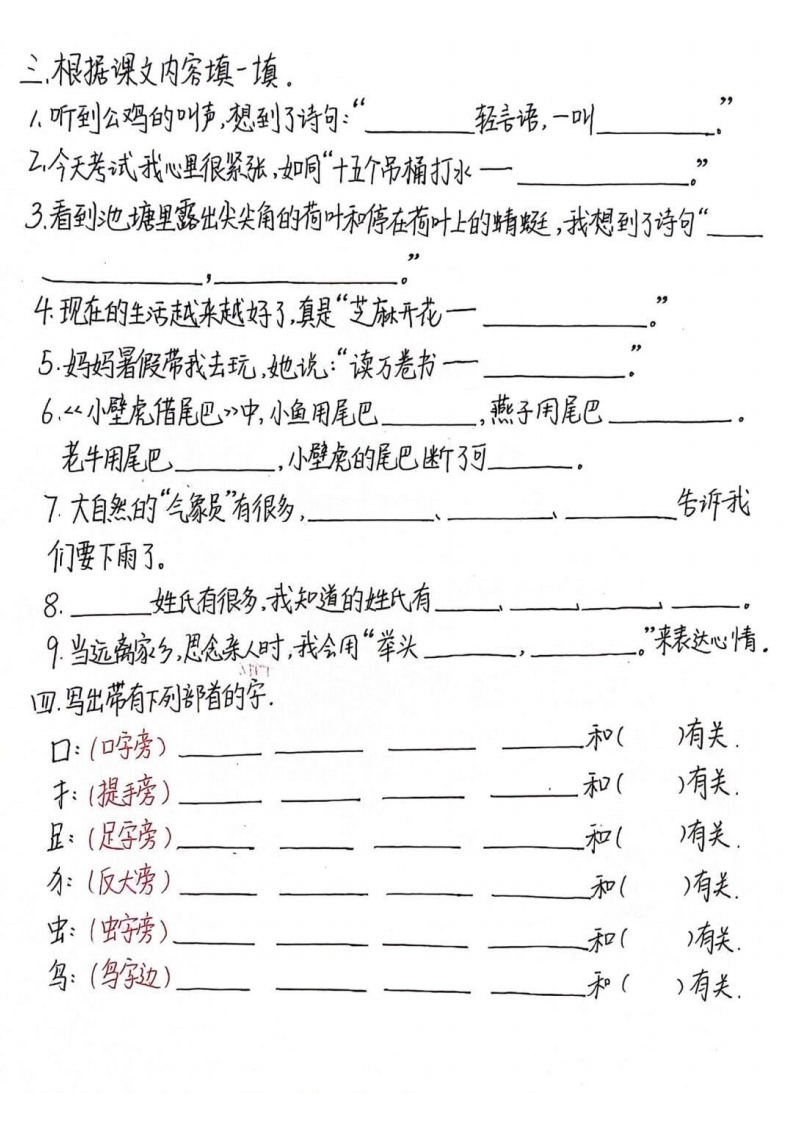 三、根据课文内容填一填.
1.听到公鸡的叫声,想到了诗句:“________轻言语,一叫________.”
2.今天考试,我心里很紧张,如同“十五个吊桶打水——____________.”
3.看到池塘里露出尖尖角的荷叶和停在荷叶上的蜻蜓,我想到了诗句“____
____________,____________.”
4.现在的生活越来越好了,真是“芝麻开花——____________.”
5.妈妈暑假带我去玩,她说:“读万卷书——__________.”
6.《小壁虎借尾巴》中,小鱼用尾巴________,燕子用尾巴__________.
老牛用尾巴________,小壁虎的尾巴断了可________.
7.大自然的“气象员”有很多,__________、________、________告诉我
们要下雨了。
8.______姓氏有很多,我知道的姓氏有_____、_____、_____、_____。
9.当远离家乡,思念亲人时,我会用“举头________,________.”来表达心情.
四.写出带有下列部首的字.
口:(口字旁)______ ______ ______ ______和( )有关.
扌:(提手旁)______ ______ ______ ______和( )有关.
𧾷:(足字旁)______ ______ ______ ______和( )有关.
犭:(反犬旁)______ ______ ______ ______和( )有关.
虫:(虫字旁)______ ______ ______ ______和( )有关.
鸟:(鸟字边)______ ______ ______ ______和( )有关.